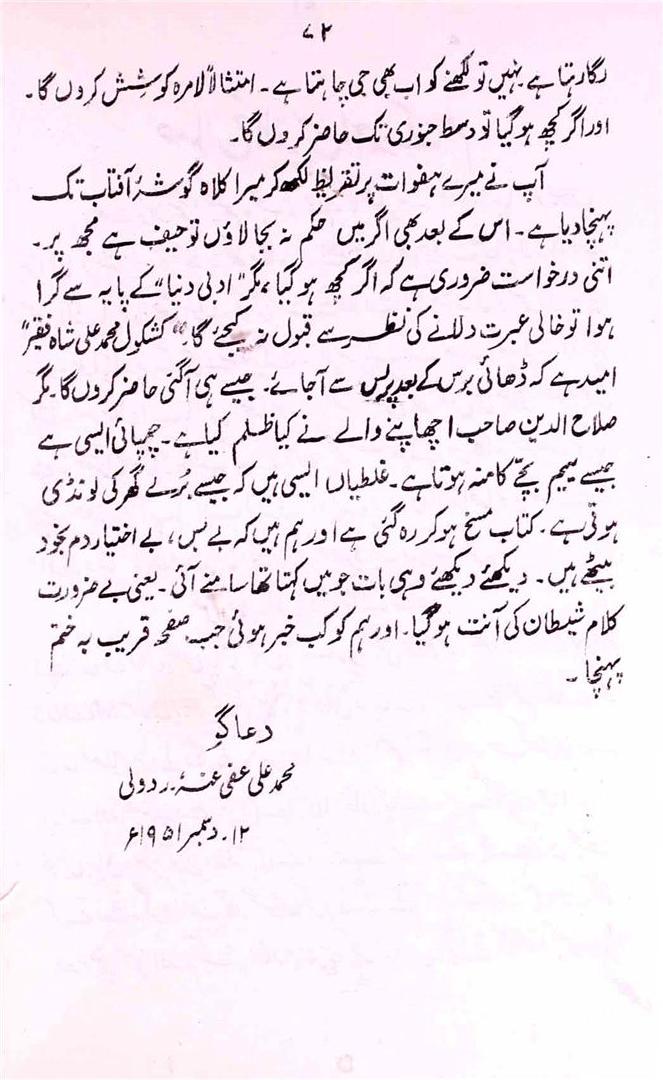 ۷۲
رگا رہتا ہے نہیں تو لکھنے کو اب بھی جی چاہتا ہے۔ امتثالاً لامرہ کوشش کروں گا۔
اور اگر کچھ ہو گیا تو وسط جنوری تک حاضر کروں گا۔
آپ نے میرے ہفوات پر تقریظ لکھ کر میرا کلاہ گوشۂ آفتاب تک
پہنچا دیا ہے۔ اس کے بعد بھی اگر میں حکم نہ بجا لاؤں تو حیف ہے مجھ پر۔
اتنی درخواست ضروری ہے کہ اگر کچھ ہو گیا، مگر "ادبی دنیا" کے پایہ سے گرا
ہوا تو خالی عبرت دلانے کی نظر سے قبول نہ کیجئے گا۔ "کشکول محمد علی شاہ فقیر"
امید ہے کہ ڈھائی برس کے بعد پریس سے آ جائے۔ جیسے ہی آ گئی حاضر کروں گا۔ مگر
صلاح الدین صاحب! چھاپنے والے نے کیا ظلم کیا ہے۔ چھپائی ایسی ہے
جیسے یتیم بچے کا منہ ہوتا ہے۔ غلطیاں ایسی ہیں کہ جیسے بُرے گھر کی لونڈی
ہوتی ہے۔ کتاب مسخ ہو کر رہ گئی ہے اور ہم ہیں کہ بے بس، بے اختیار دم بخود
بیٹھے ہیں۔ دیکھئے دیکھئے وہی بات جو میں کہتا تھا سامنے آئی۔ یعنی بے ضرورت
کلام شیطان کی آنت ہو گیا۔ اور ہم کو کب خبر ہوئی جب صفحہ قریب بہ ختم
پہنچا۔
دعا گو
محمد علی عفی عنہٗ۔ ردولی
۱۲۔ دسمبر ۱۹۵۱ء